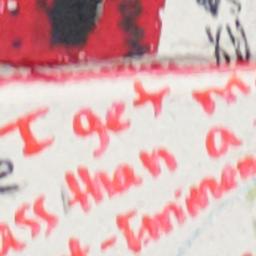 I get m
ass than a
t-Eminem